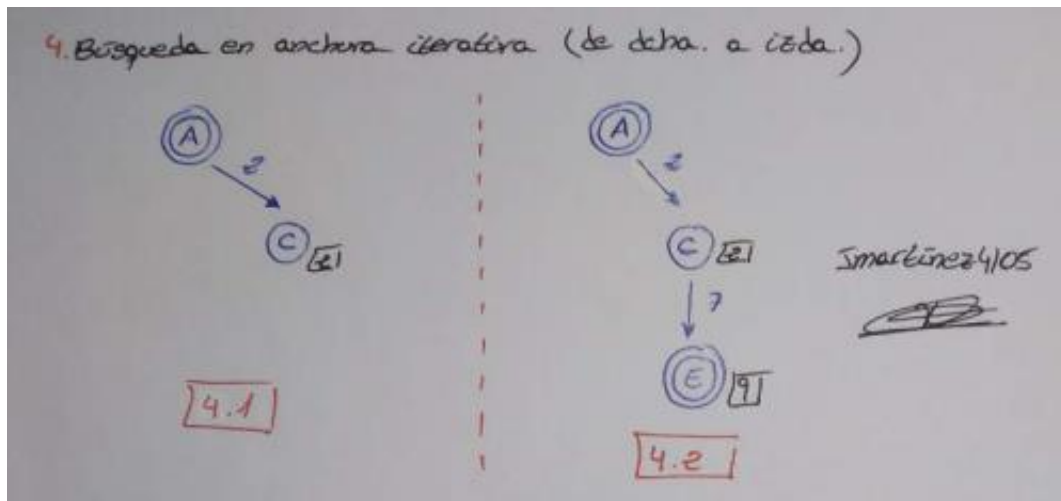 4. Búsqueda en anchura iterativa (de dcha. a izda.)
A
2
C
2
4.1
A
2
C
2
7
E
9
4.2
Jmartinez4105